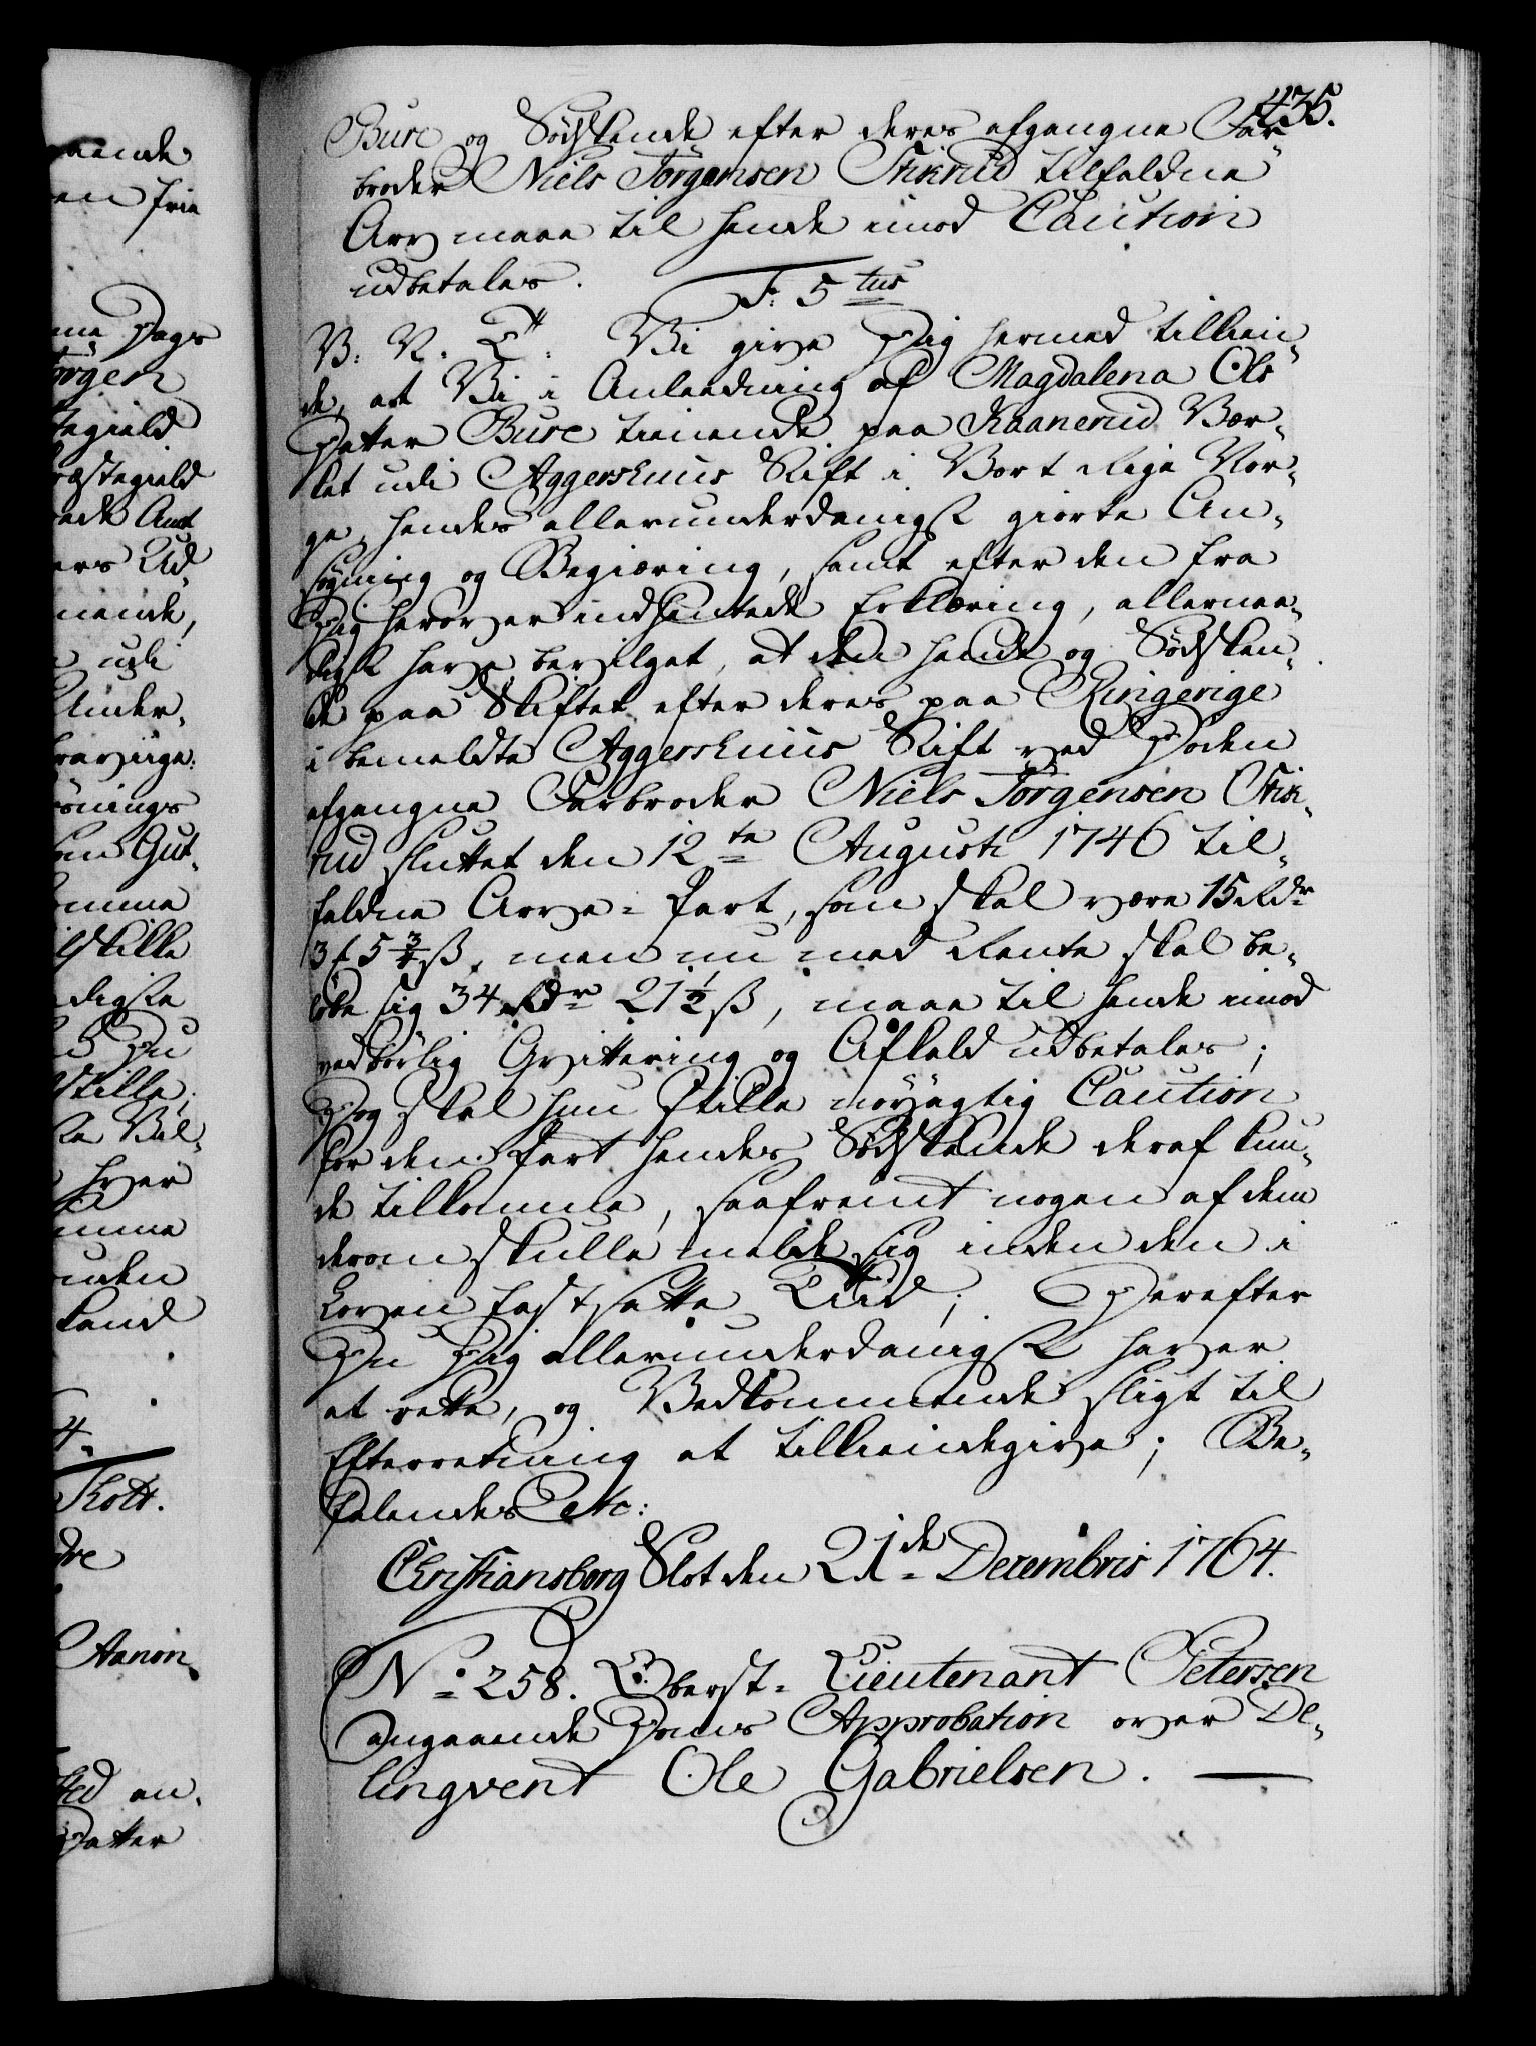 435.
Bure og Södskende efter deres afgangne Far„
broder Niels Jörgensen Stikrud tilfaldne
Arv maae til hende imod Caution
udbetales.
F. 5 tus
V. V. T: Vi give Dig hermed tilkien„
de, at Vi i Anledning af Magdalena Ols„
Datter Bure tienende paa Kaanerud Vær„
ket udi Aggershuus Stift i Vort Rige Nor„
ge, hendes allerunderdanigst giorte An„
søgning og Begiæring, samt efter den fra
Dig herover indhentede Erklæring, allernaa„
digst have bevilget, at den hende og Södsken„
de paa Skiftet efter deres paa Ringerige
i bemeldte Aggershuus Stift ved Döden
afgangne Farbroder Niels Jörgensen Stik„
rud sluttet den 12te Augusti 1746 til„
faldne Arve-Part, som skal være 15 Rdr
3 f 5 3/4 ß, men nu med Rente skal be„
löbe sig 34 Rdr 21 1/2 ß, maae til hende imod
vedbörlig Qvittering og Afkald udbetales;
Dog skal hun stille nöyagtig Caution
for den Part hendes Södskende deraf kun„
de tilkomme, saafremt nogen af dem
derom skulle melde sig inden den i
Loven fastsatte Tiid; Derefter
Du Dig allerunderdanigst haver
at rette, og Vedkommende sligt til
Efterretning at tilkiendegive; Be„
falendes etc:
Christiansborg Slot den 21de Decembris 1764.
No 258. Oberst-Lieutenant Petersen
angaaende Doms Approbation over De„
linqvent Ole Gabrielsen.